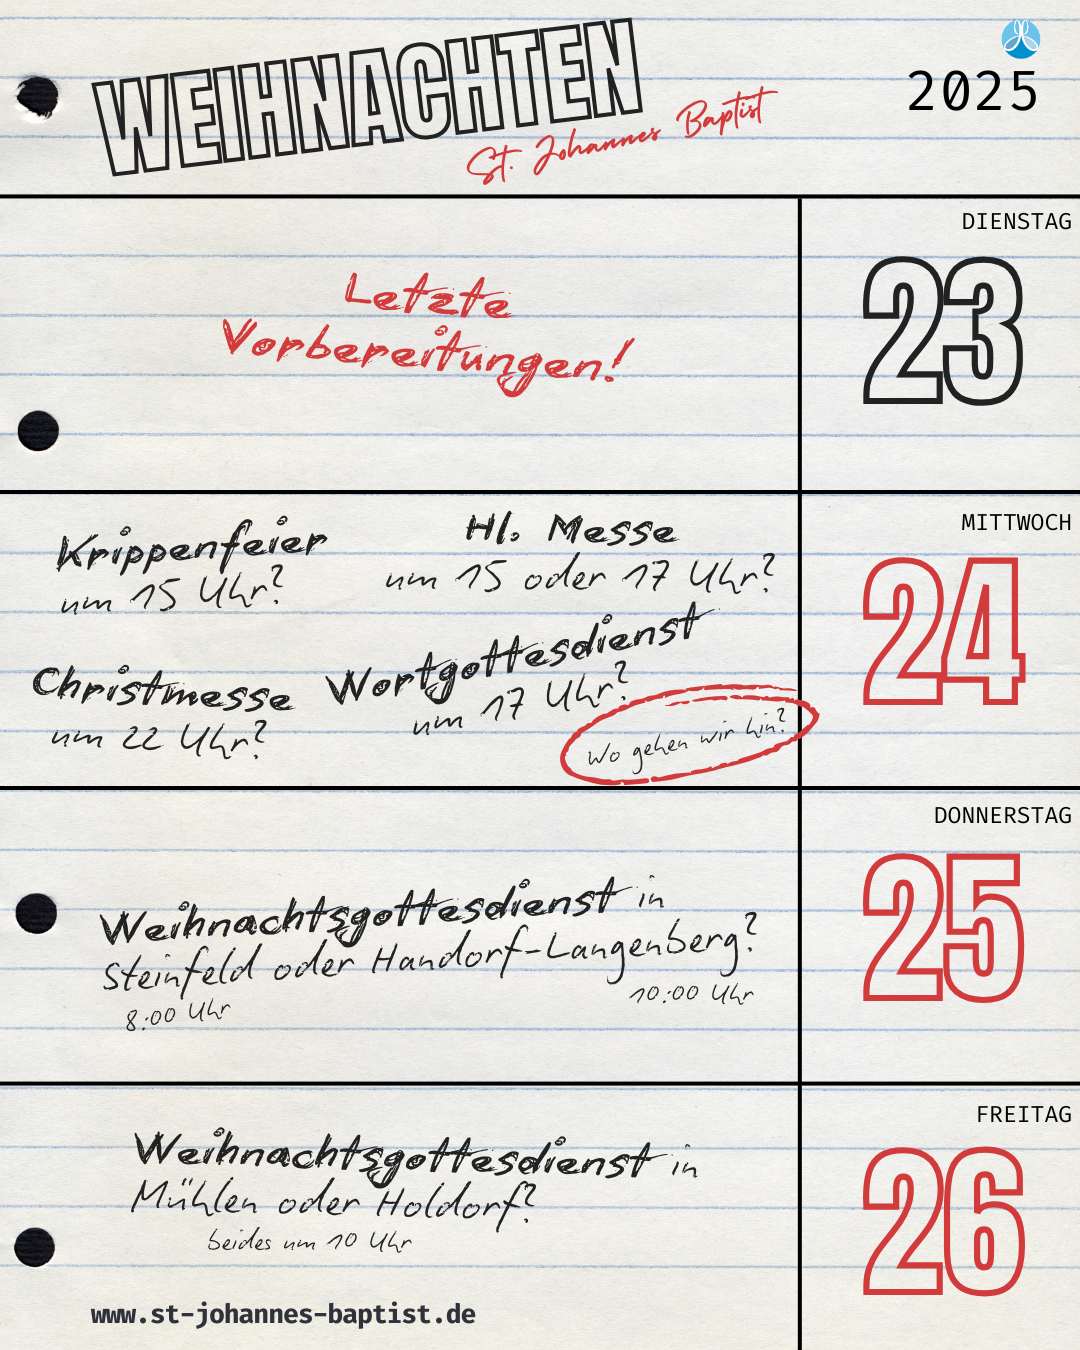 WEIHNACHTEN
St. Johannes Baptist
2025
DIENSTAG
23
Letzte
Vorbereitungen!
MITTWOCH
24
Krippenfeier
um 15 Uhr?
Hl. Messe
um 15 oder 17 Uhr?
Christmesse
um 22 Uhr?
Wortgottesdienst
um 17 Uhr?
Wo gehen wir hin?
DONNERSTAG
25
Weihnachtsgottesdienst in
Steinfeld oder Handorf-Langenberg?
8:00 Uhr
10:00 Uhr
FREITAG
26
Weihnachtsgottesdienst in
Mühlen oder Holdorf?
beides um 10 Uhr
www.st-johannes-baptist.de